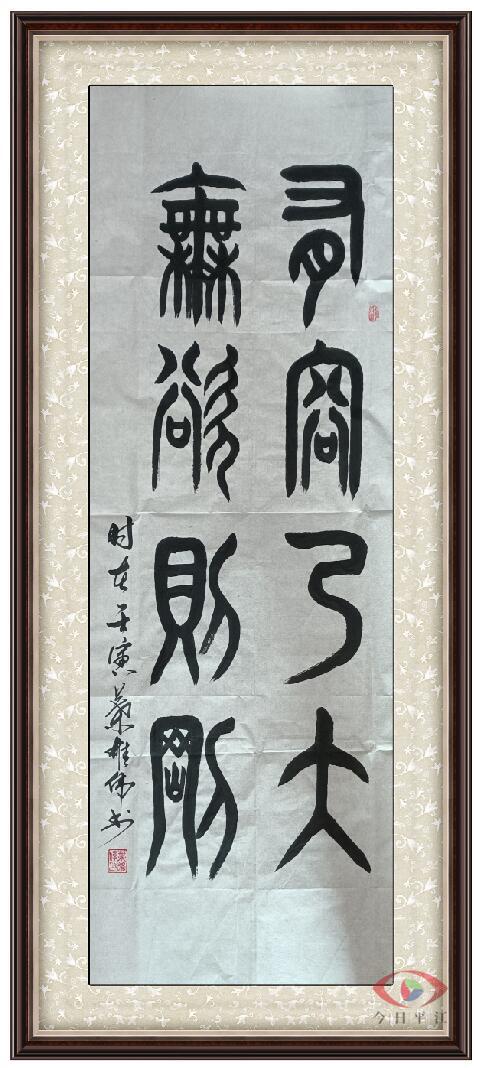 有容乃大
無欲則剛
时在壬寅葉雄伟书
今日平江